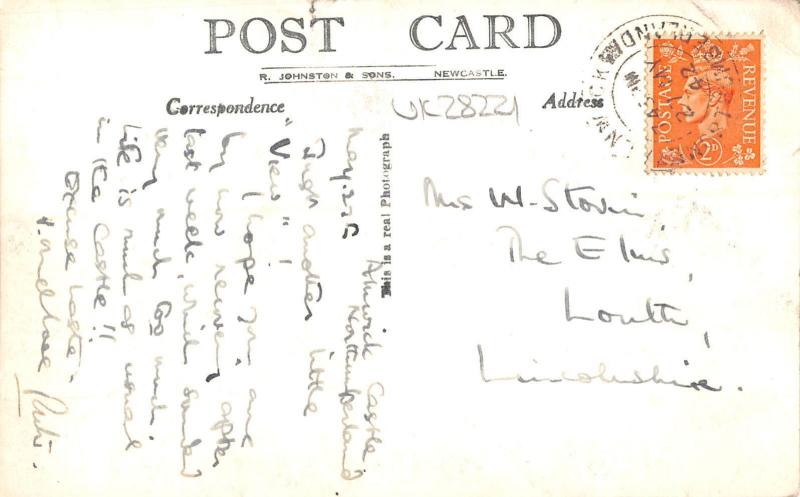 POST CARD
R. JOHNSTON & SONS. NEWCASTLE.
Correspondence
Address
UK28221
This is a real Photograph
Alnwick Castle
Northumberland
May 22
Just another little
"View"!
I hope you are
by now recovered after
last week, which sounded
very much too much.
Life is much as usual
in the Castle!!
Excuse haste.
Mrs W. Storin,
The Elms,
Louth,
Lincolnshire.
POSTAGE
REVENUE
2D